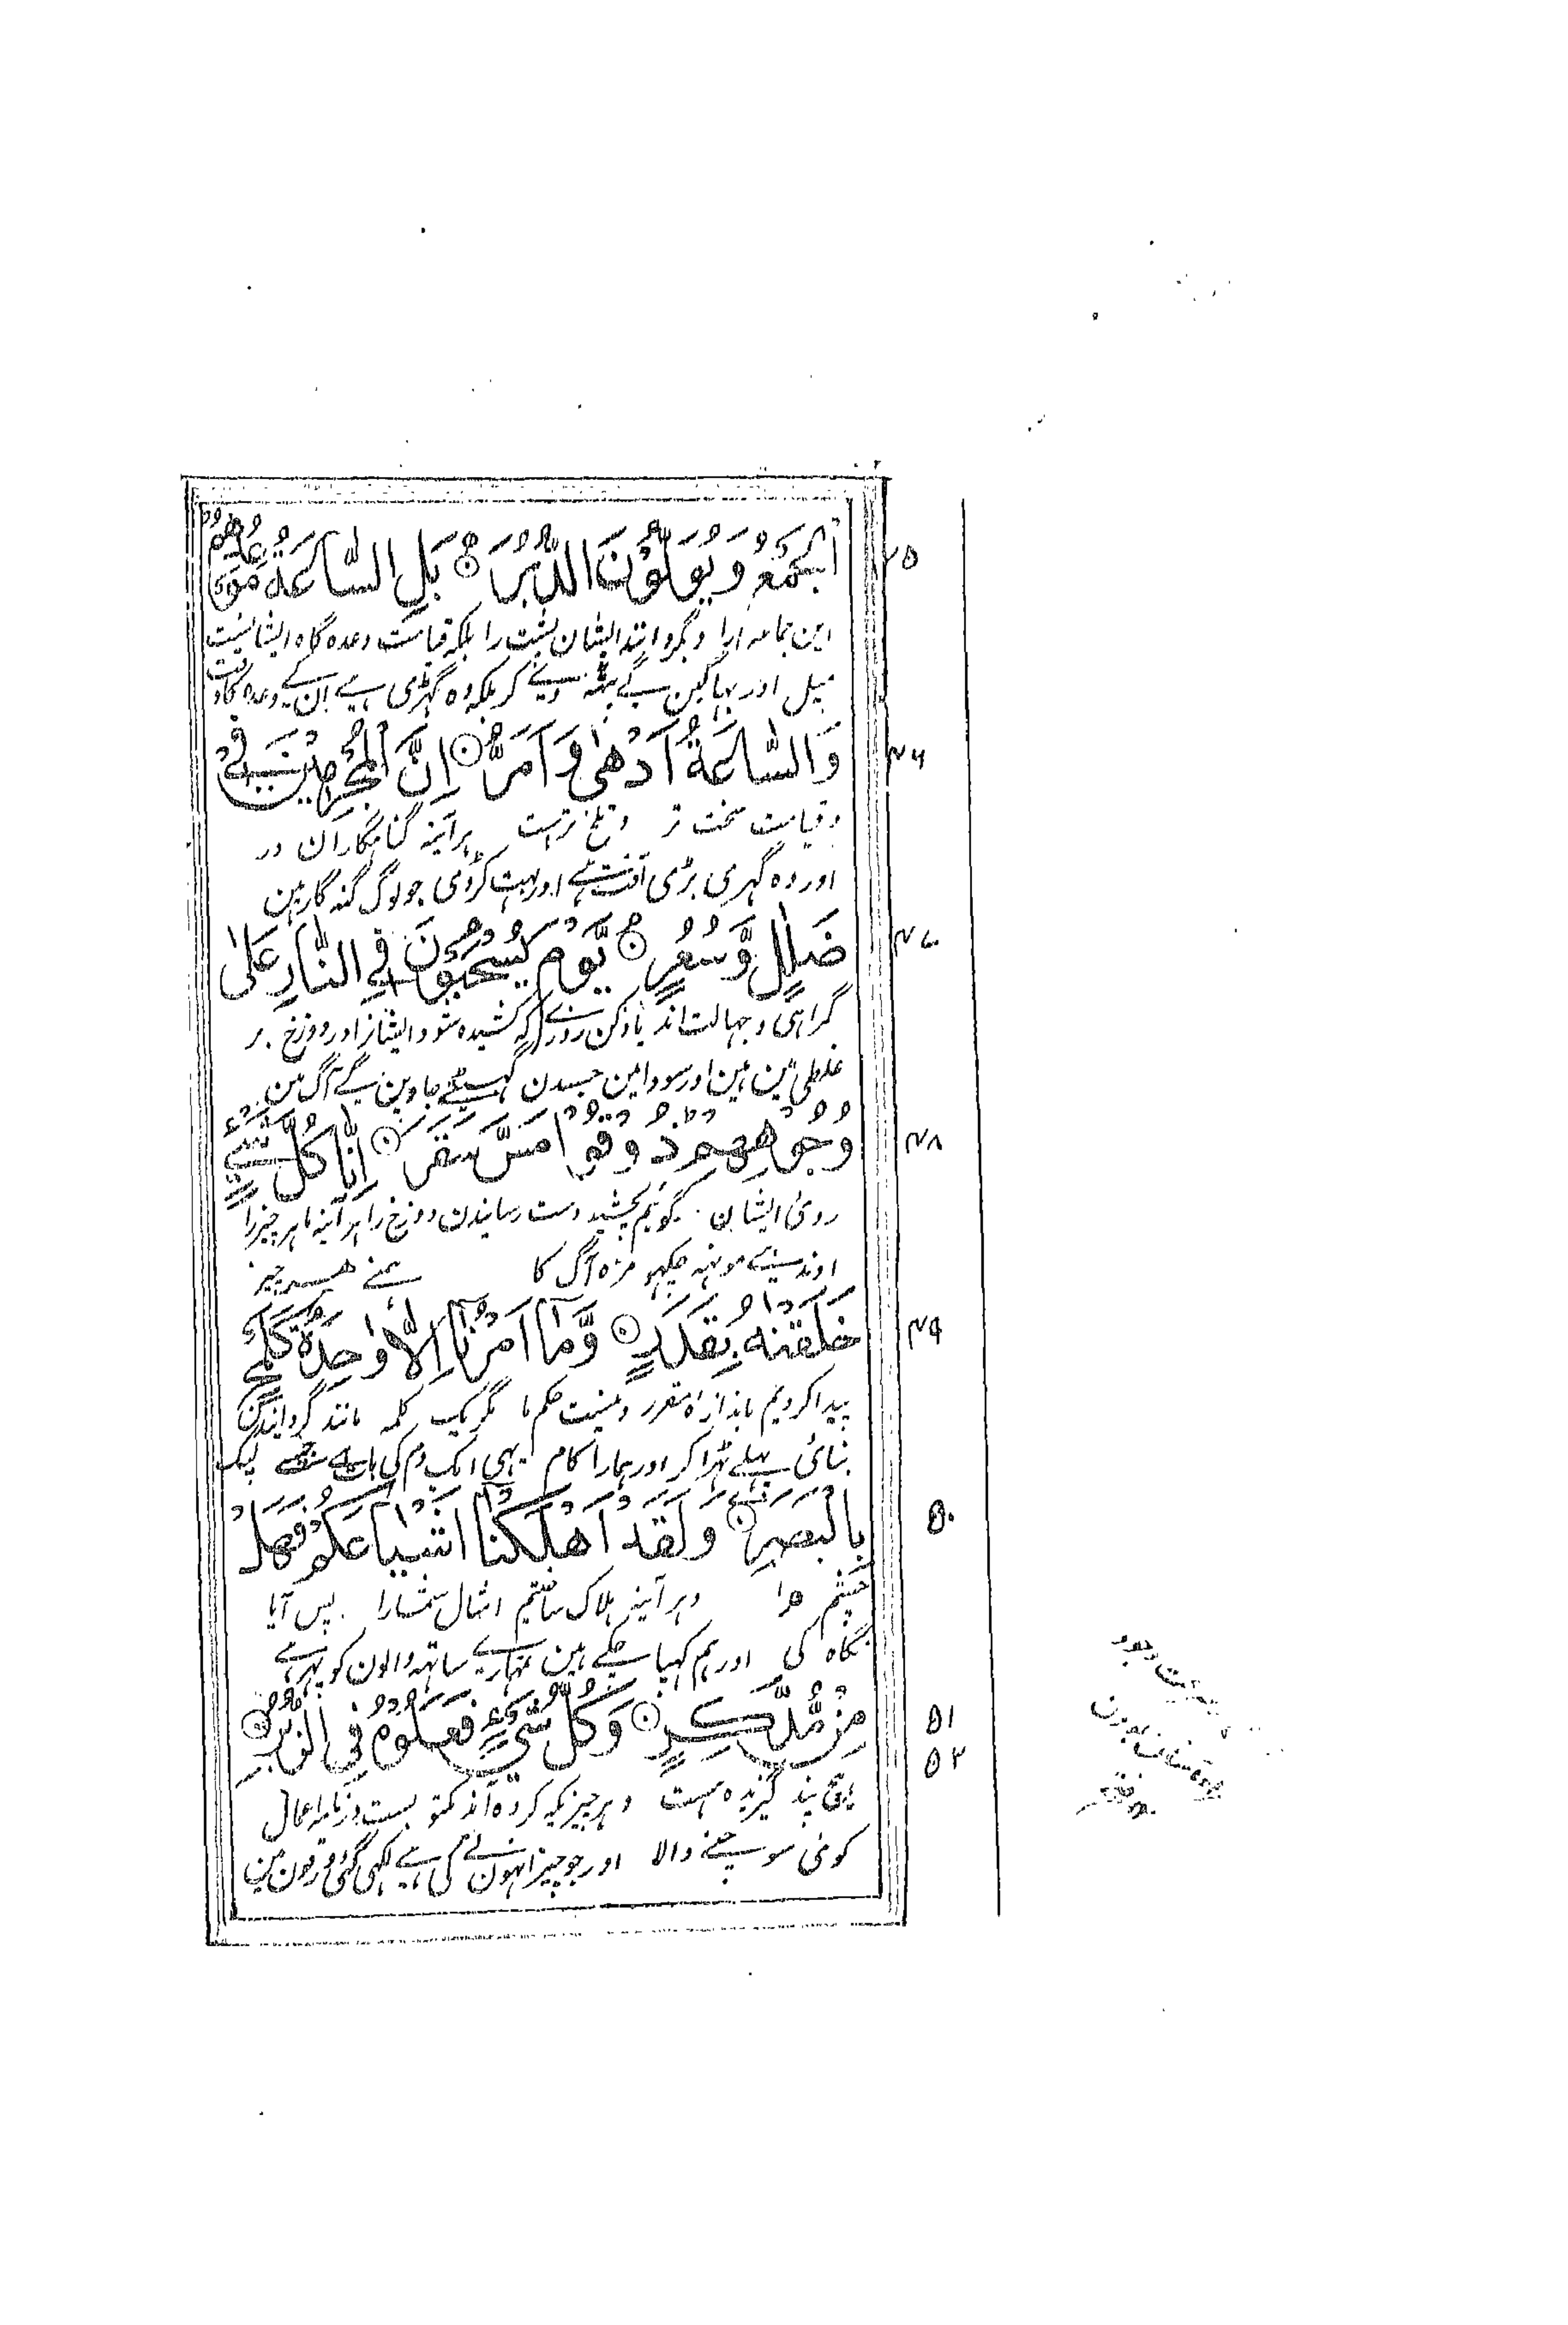 الْجَمْعُ وَيُوَلُّوْنَ الدُّبُرَ ۝ بَلِ السَّاعَةُ مَوْعِدُهُمْ ۴۵
این جماعه را و بگردانند ایشان پشت را بلکه قیامت وعده گاه ایشانست
میل اور بہاگین گے پیٹھ دیے کر بلکہ وہ گہڑی ہے ان کے وعدہ کا وقت
وَالسَّاعَةُ اَدْهٰى وَاَمَرُّ ۝ اِنَّ الْمُجْرِمِيْنَ فِيْ ۴۶
و قیامت سخت تر و تلخ تراست ہرآینه گناہگاران در
اور وہ گہری بڑی آفت ہے اور بہت کڑوی جو لوگ گنہ گار ہین
ضَلٰلٍ وَّسُعُرٍ ۝ يَّوْمَ يُسْحَبُوْنَ فِي النَّارِ عَلٰى ۴۷
گمراہی و جہالت اند یاد کن روزے که کشیده شود ایشانرا در دوزخ بر
غلطی مین ہین اور سودا مین جسدن گہسیٹے جاوین گے آگ مین
وُجُوْهِهِمْ ذُوْقُوْا مَسَّ سَقَرَ ۝ اِنَّا كُلَّ شَيْءٍ ۴۸
روی ایشان گوئیم بچشید دست رسانیدن دوزخ را ہرآینه ما ہر چیز را
اوندہے مونہہ چکہو مزہ آگ کا ہمنے ہر چیز
خَلَقْنٰهُ بِقَدَرٍ ۝ وَمَا اَمْرُنَا اِلَّا وَاحِدَةٌ كَلَمْحٍ ۴۹
پیدا کردیم باندازه مقرر و نیست حکم ما مگر یک کلمه مانند گردانیدن
بنائی پہلے ٹہرا کر اور ہمارا کام یہی ایک دم کی بات ہے جیسے لپک
بِالْبَصَرِ ۝ وَلَقَدْ اَهْلَكْنَا اَشْيَاعَكُمْ فَهَلْ ۵۰
چشم را و ہرآینه ہلاک ساختیم امثال شمارا پس آیا
نگاہ کی اور ہم کہپا چکے ہین تمہارے ساتہہ والون کو پہر ہے
مِنْ مُّدَّكِرٍ ۝ وَكُلُّ شَيْءٍ فَعَلُوْهُ فِي الزُّبُرِ ۝ ۵۱ ۵۲
ہیچ پند گیرنده ہست و ہر چیز یکه کرده اند مکتوبست در نامه اعمال
کوئی سوچنے والا اور جو چیز انہون نے کی ہے لکہی گئی ورقون مین